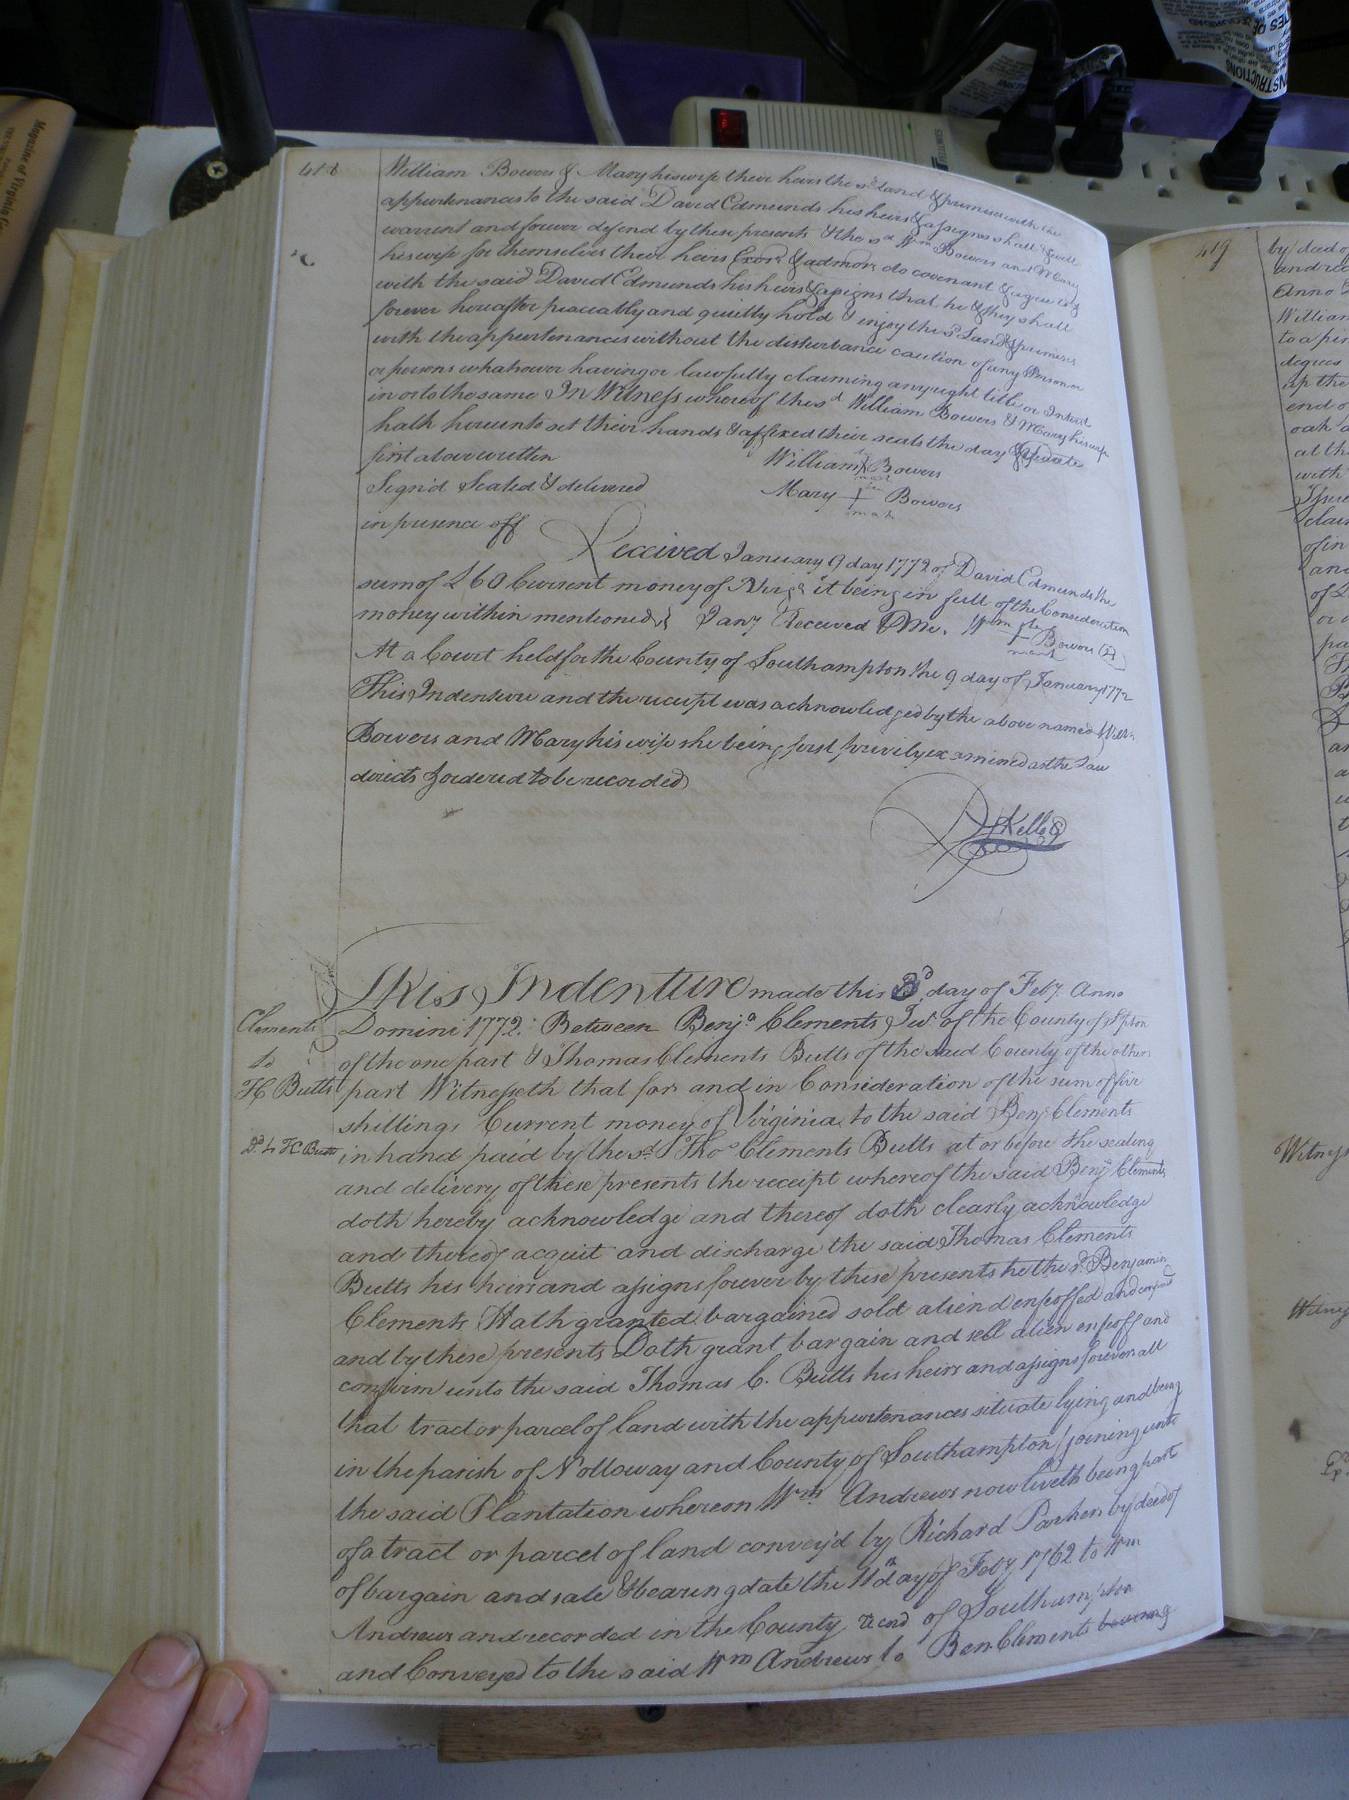 418
William Bowers & Mary his wife their heirs the sd land & premises with the
appurtenances to the said David Edmunds his heirs & assigns shall & will
warrent and forever defend by these presents & the sd Wm Bowers and Mary
his wife for themselves their heirs Exors & admors do covenant & agree
with the said David Edmunds his heirs & assigns that he & they shall
forever hereafter peaceably and quietly hold & injoy the sd Land & premises
with the appurtenances without the disturbance caution of any Person or
or persons whatsoever having or lawfully claiming any right title or Intrest
in or to the same In Witness whereof the sd William Bowers & Mary his wife
hath hereunto set their hands & affixed their seals the day & date
first above written
William Bowers
mark
Sign'd Sealed & delivered
Mary + Bowers
mark
in presence off
Received January 9 day 1772 of David Edmunds the
sum of £60 Current money of Virga it being in full of the Consideration
money within mentioned Received Me. Wm + Bowers
mark
At a Court held for the County of Southampton the 9 day of January 1772
This Indenture and the receipt was acknowledged by the above named Will
Bowers and Mary his wife she being first privily examined as the Law
directs & ordered to be recorded
Kello
This Indenture made this 3d day of Feby. Anno
Clements
Domini 1772. Between Benja Clements Jur of the County of Spton
to
of the one part & Thomas Clements Butts of the said County of the other
TC Butts
part Witnesseth that for and in Consideration of the sum of five
shillings Current money of Virginia to the said Benj Clements
Dd to TC Butts
in hand paid by the sd Thos Clements Butts at or before the sealing
and delivery of these presents the receipt whereof the said Benj Clements
doth hereby acknowledge and thereof doth clearly acknowledge
and thereof acquit and discharge the said Thomas Clements
Butts his heirs and assigns forever by these presents he the sd Benjamin
Clements Hath granted bargained sold aliend enfeoffed and
and by these presents Doth grant bargain and sell alien enfeoff and
confirm unto the said Thomas C. Butts his heirs and assigns forever all
that tract or parcel of land with the appurtenances situate lying and being
in the parish of Nolloway and County of Southampton joining unto
the said Plantation whereon Wm Andrews now liveth being part
of a tract or parcel of land convey'd by Richard Parker by deed of
of bargain and sale & bearing date the 11th day of Feby 1762 to Wm
Andrews and recorded in the County of Southampton
and Conveyed to the said Wm Andrews to Ben Clements bearing
419
by deed of
Anno
William
to a
degrees
up the
end of
oak
at the
with
of in
and
Witness